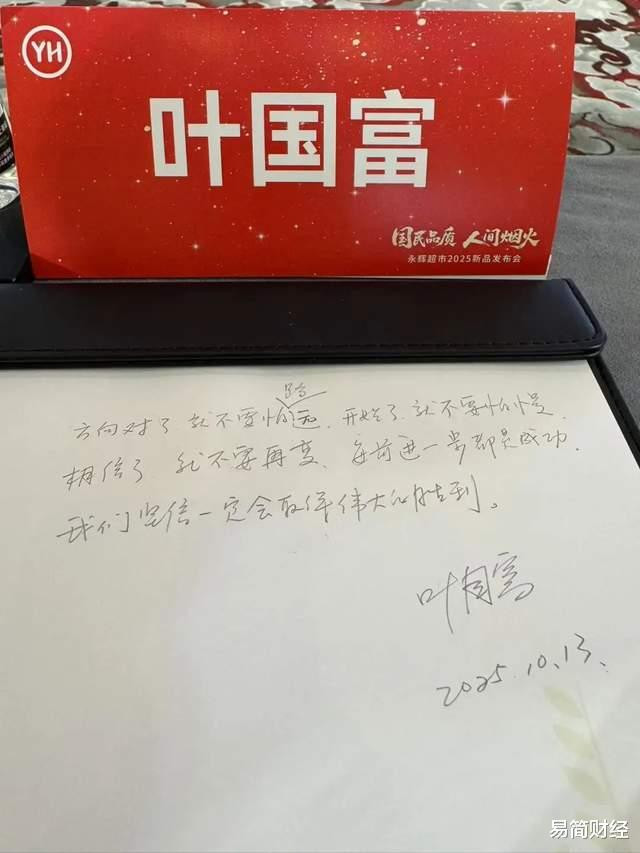 YH
叶国富
国民品质 人间烟火
永辉超市2025新品发布会
路
方向对了 就不要怕远. 开始了 就不要怕慢.
相信了 就不要再变、每前进一步都是成功.
我们坚信一定会取得伟大的胜利。
叶国富
2025.10.13.
易简财经